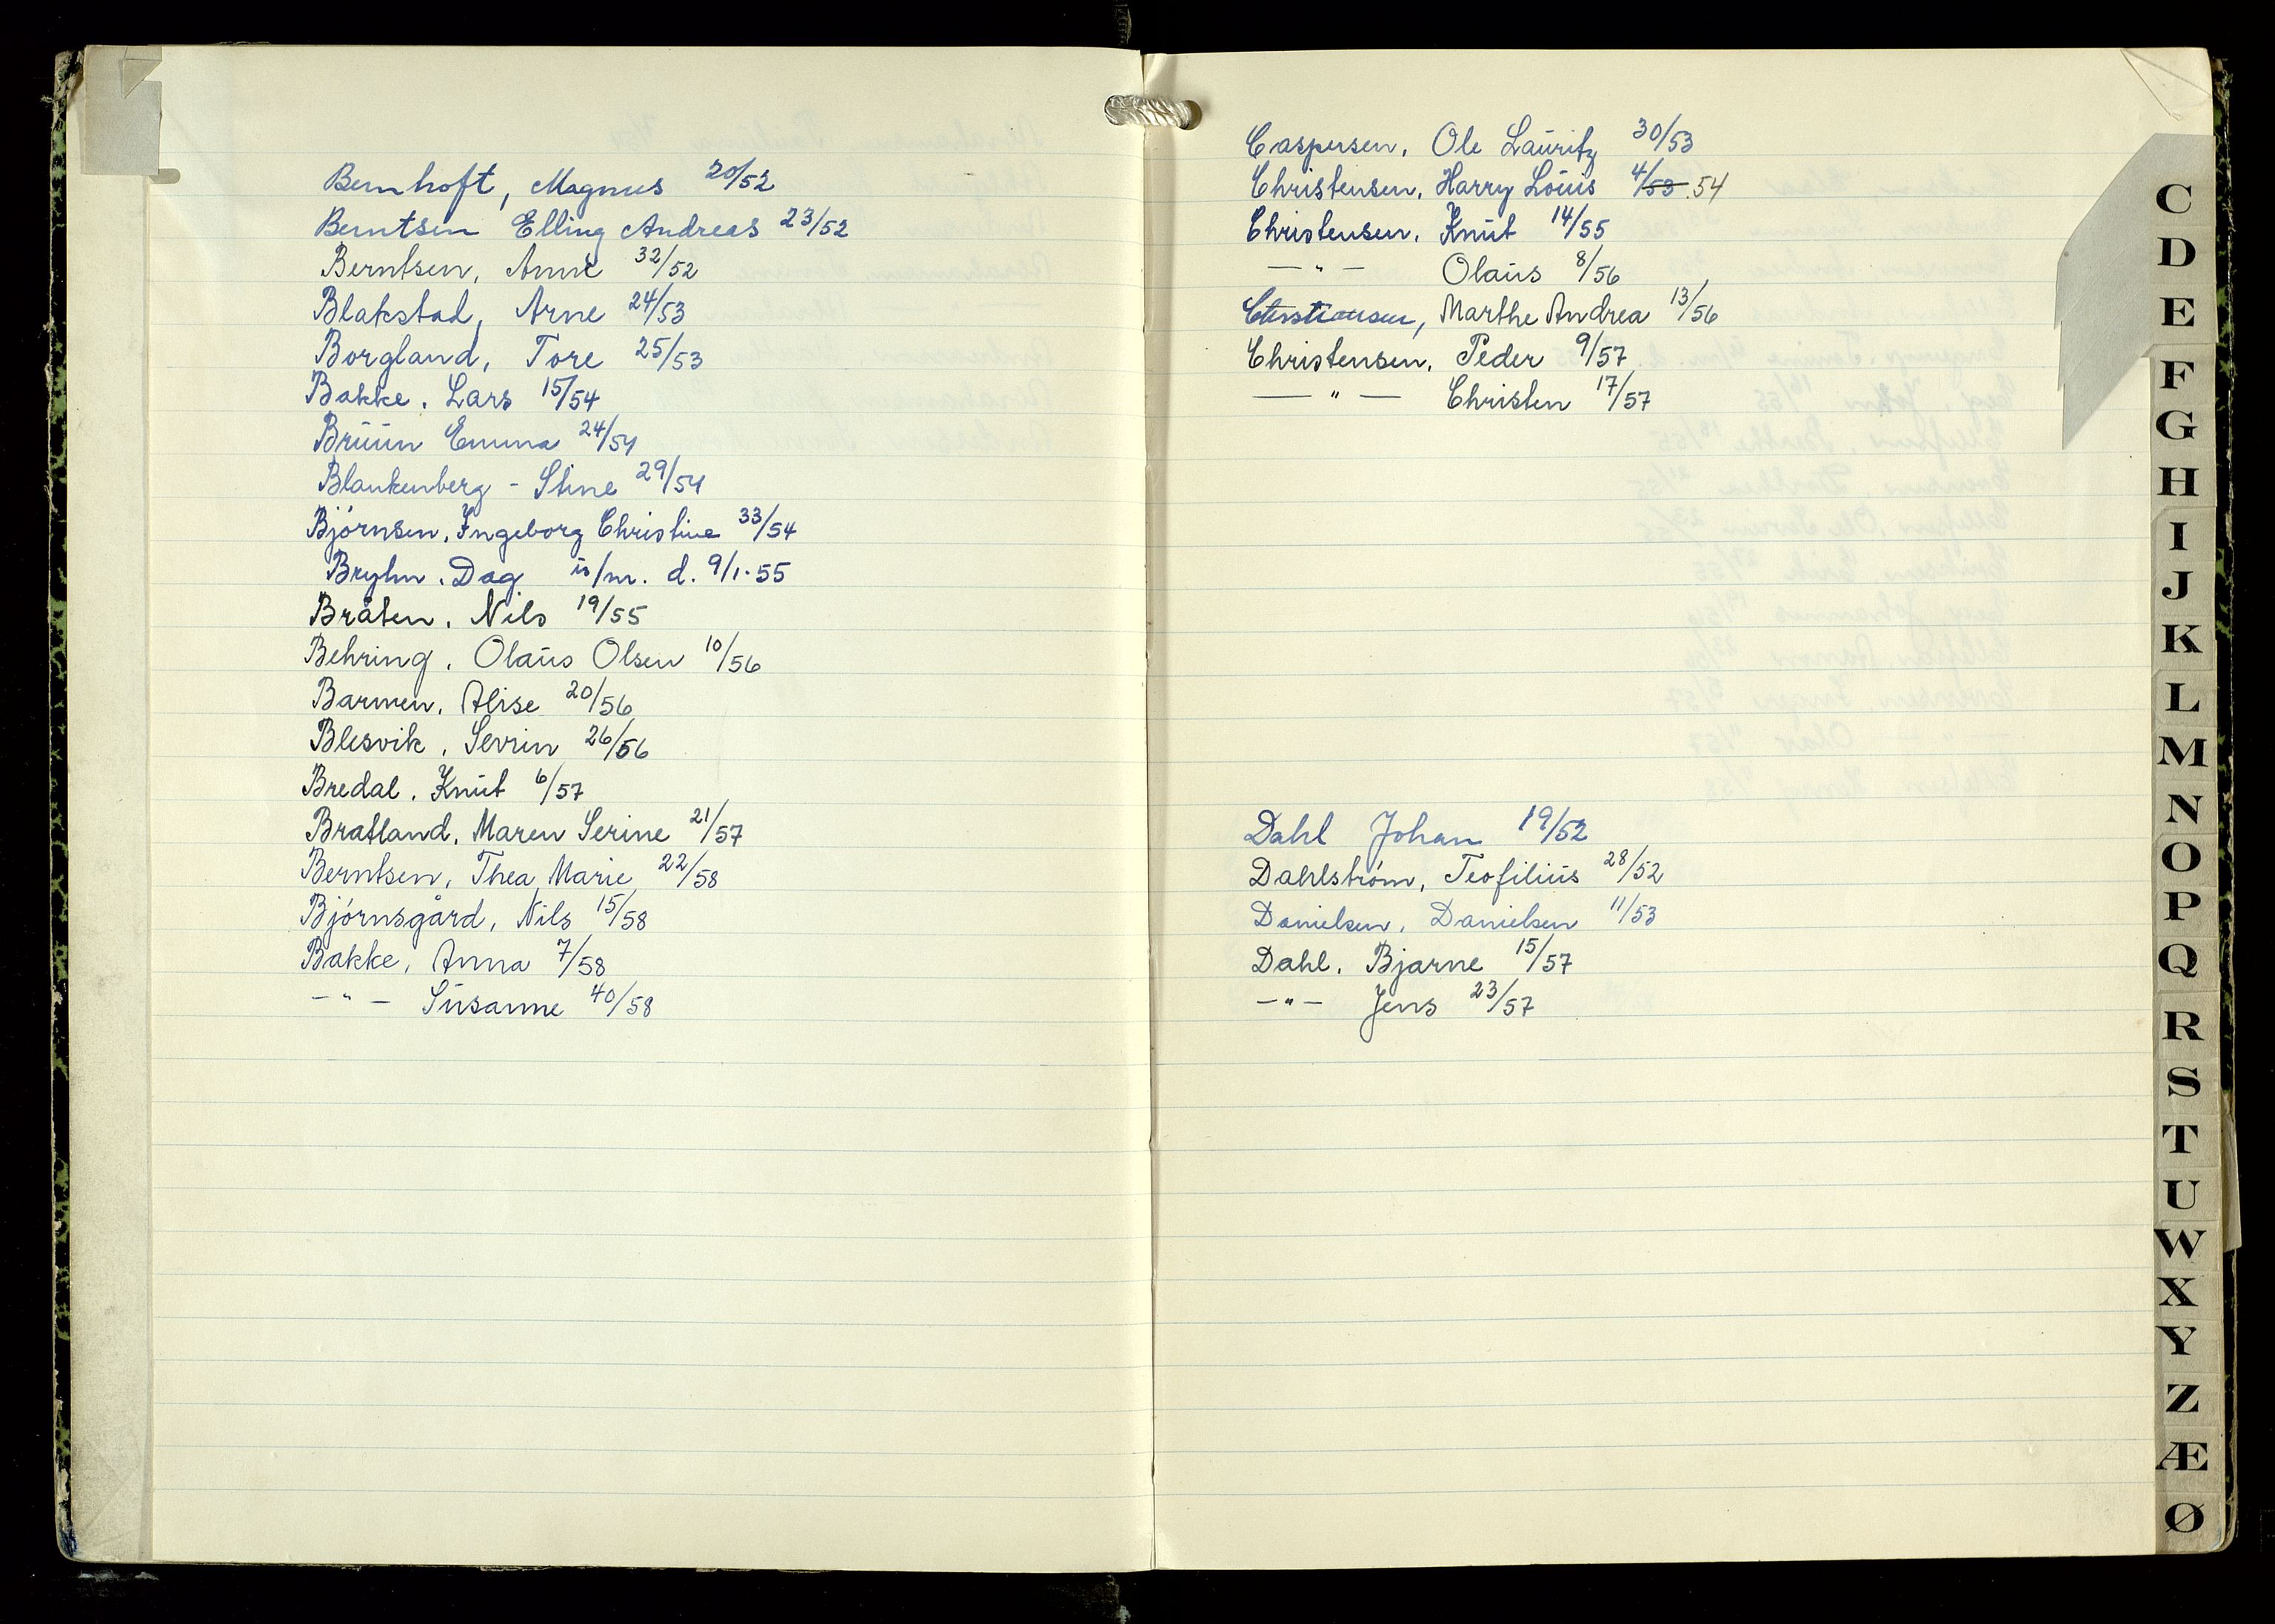 Bernhoft, Magnus 20/52
Berntsen Elling Andreas 23/52
Berntsen, Anne 32/52
Blakstad, Arne 24/53
Borgland, Tore 25/53
Bakke, Lars 15/54
Bruun Emma 24/54
Blankenberg - Stine 29/54
Bjørnsen, Ingeborg Christine 33/54
Bryhn, Dag u/nr. d. 9/1-55
Bråten, Nils 19/55
Behring, Olaus Olsen 10/56
Barmen, Alise 20/56
Blesvik, Sevrin 26/56
Bredal, Knut 6/57
Bratland, Maren Serine 21/57
Berntsen, Thea Marie 22/58
Bjørnsgård, Nils 15/58
Bakke, Anna 7/58
— " — Susanne 40/58
Caspersen, Ole Lauritz 30/53
Christensen, Harry Louis 4/53.54
Christensen, Knut 14/55
— " — Olaus 8/56
Marthe Andrea 13/56
Christensen, Peder 9/57
— " — Christen 17/57
Dahl Johan 19/52
Dahlstrøm, Teofilius 28/52
Danielsen, Danielsen 11/53
Dahl, Bjarne 15/57
— " — Jens 23/57
C
D
E
F
G
H
I
J
K
L
M
N
O
P
Q
R
S
T
U
W
X
Y
Z
Æ
Ø